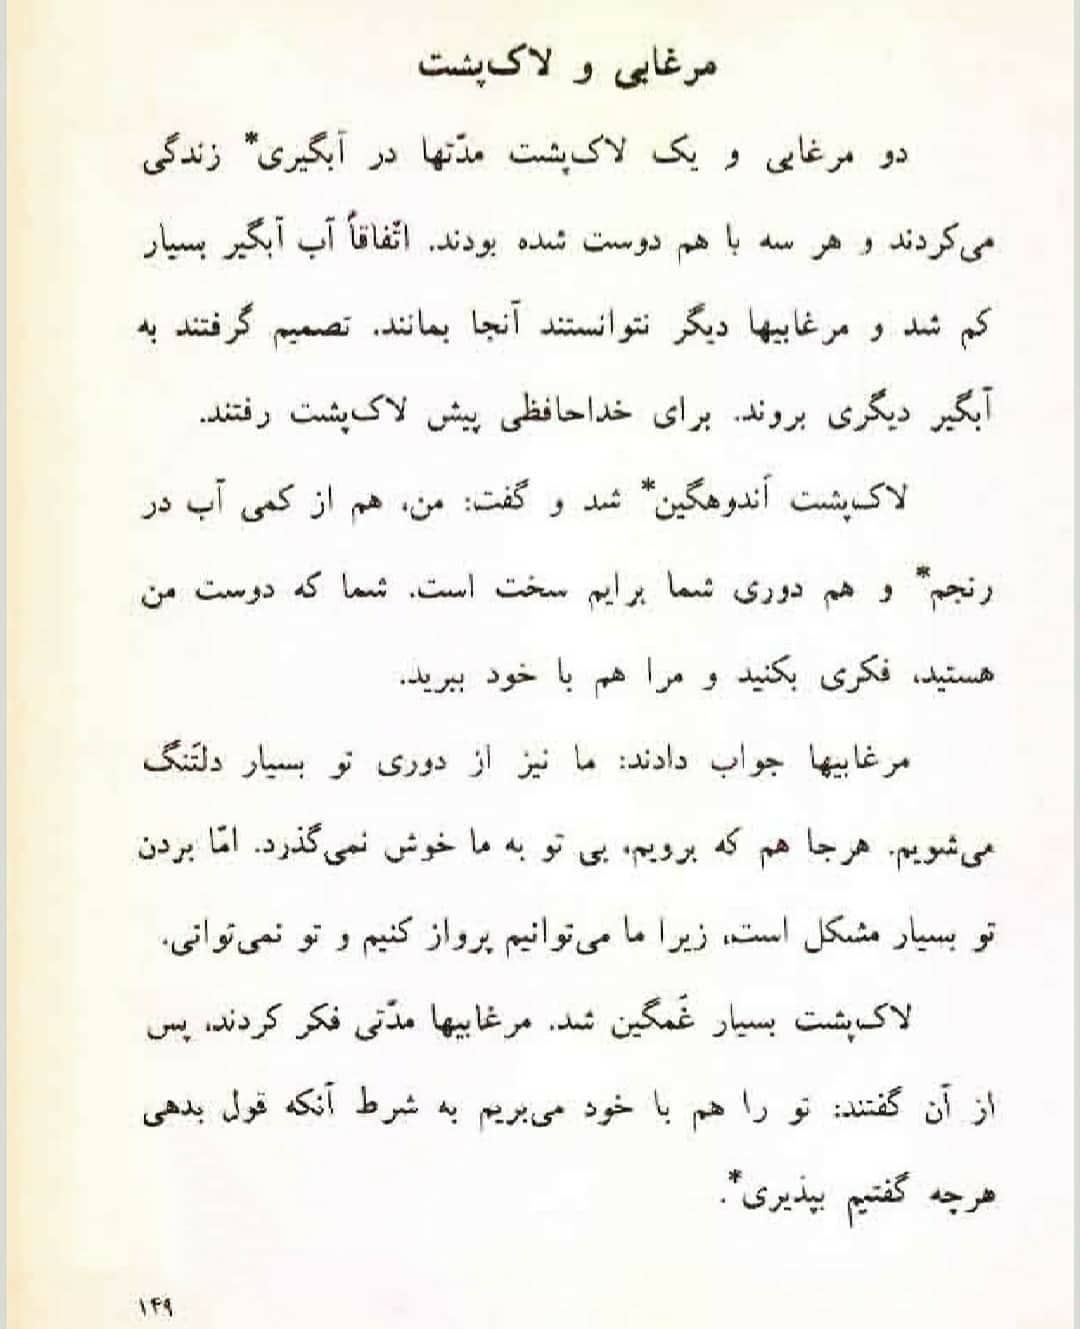 مرغابی و لاک‌پشت
دو مرغابی و یک لاک‌پشت مدّتها در آبگیری* زندگی
می‌کردند و هر سه با هم دوست شده بودند. اتّفاقاً آب آبگیر بسیار
کم شد و مرغابیها دیگر نتوانستند آنجا بمانند. تصمیم گرفتند به
آبگیر دیگری بروند. برای خداحافظی پیش لاک‌پشت رفتند.
لاک‌پشت اَندوهگین* شد و گفت: من، هم از کمی آب در
رنجم* و هم دوری شما برایم سخت است. شما که دوست من
هستید، فکری بکنید و مرا هم با خود ببرید.
مرغابیها جواب دادند: ما نیز از دوری تو بسیار دلتَنگ
می‌شویم. هرجا هم که برویم، بی تو به ما خوش نمی‌گذرد. امّا بردن
تو بسیار مشکل است، زیرا ما می‌توانیم پرواز کنیم و تو نمی‌توانی.
لاک‌پشت بسیار غَمگین شد. مرغابیها مدّتی فکر کردند، پس
از آن گفتند: تو را هم با خود می‌بریم به شرط آنکه قول بدهی
هرچه گفتیم بپذیری*.
۱۴۹